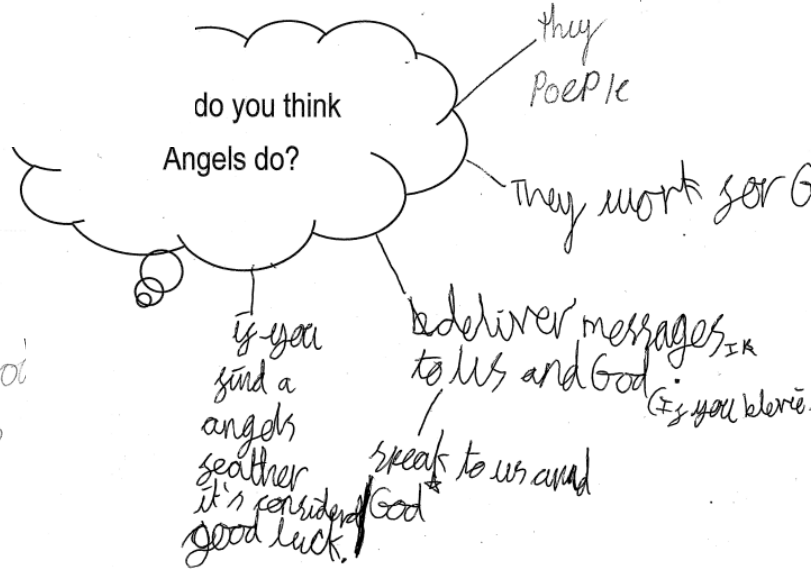 do you think
Angels do?
they
PoePle
They work for G
deliver messages
to us and God.
(If you blevie
speak to us and
God
if you
find a
angels
feather
it's considerd
good luck.